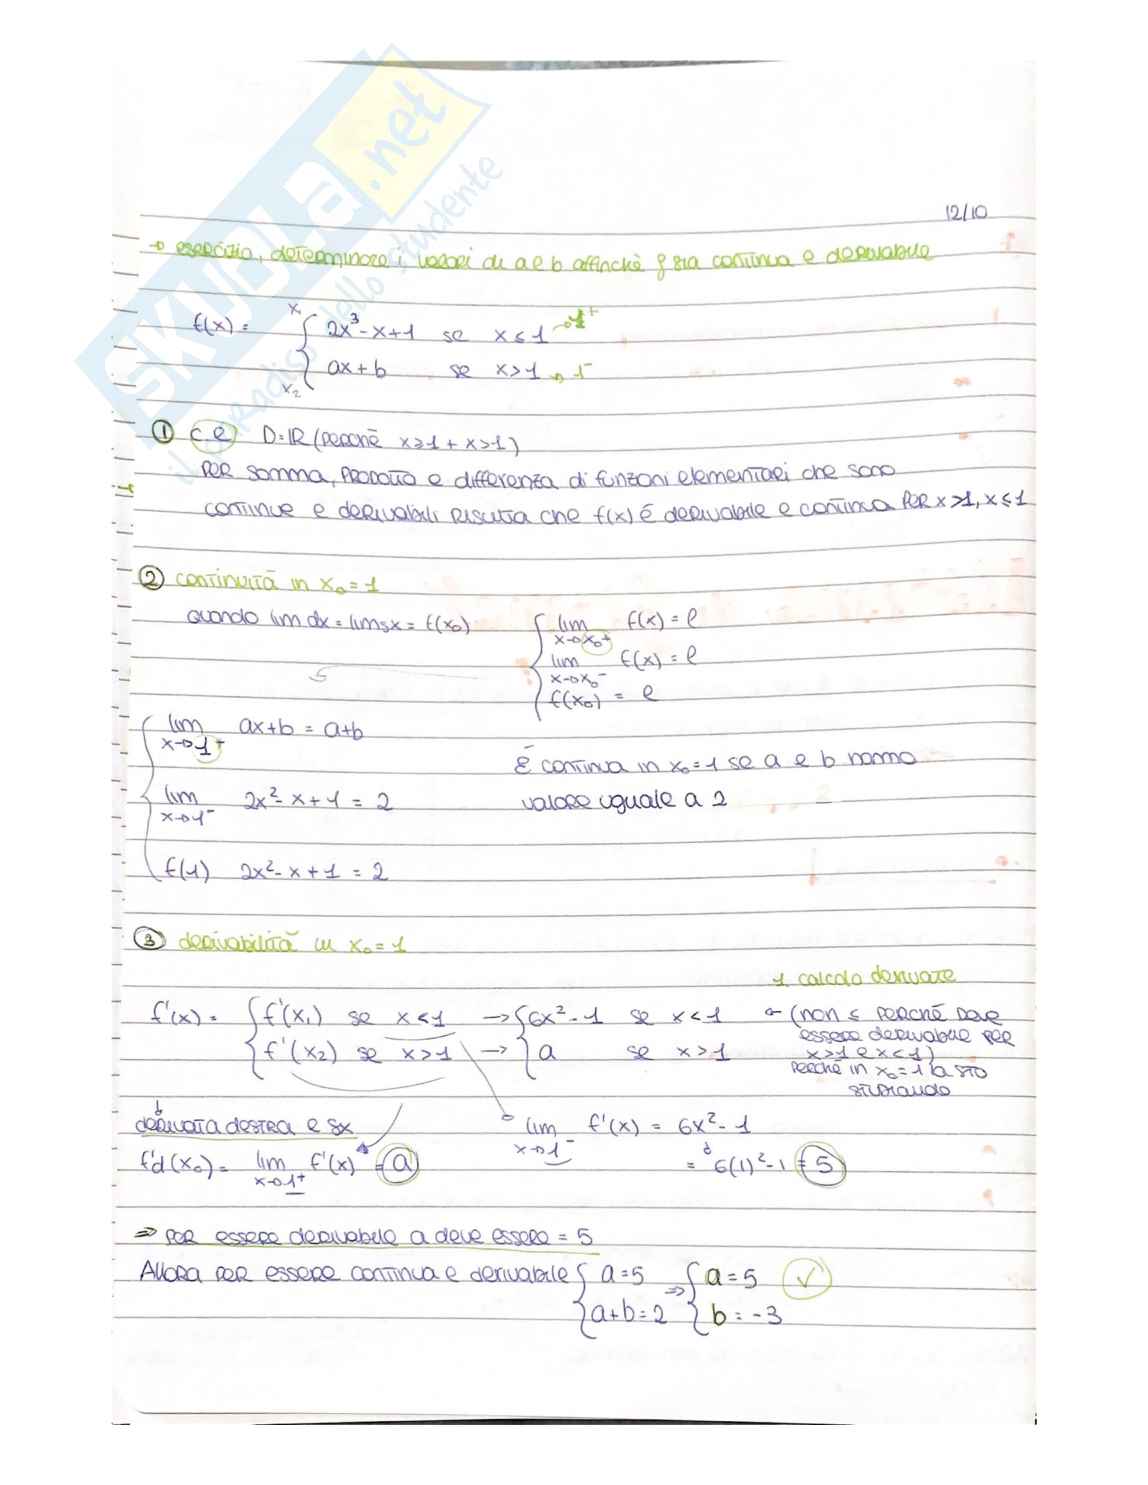 SKUOLA.net
il paradiso dello studente
12/10
→ esercizio, determinare i valori di a e b affinché f sia continua e derivabile
f(x) = { x₁ 2x³-x+1 se x ≤ 1 → 1⁺
x₂ ax+b se x>1 → 1⁻
① C.E D=IR (perché x≥1 + x>1)
per somma, prodotto e differenza di funzoni elementari che sono
continue e derivabili risulta che f(x) é derivabile e continua per x>1, x≤1
② continuità in x₀=1
quando lim dx = lim sx = f(x₀)
{ lim x→x₀+ f(x) = l
lim x→x₀- f(x) = l
f(x₀) = l
{ lim x→1+ ax+b = a+b
lim x→1- 2x²-x+1 = 2
f(1) 2x²-x+1 = 2
É continua in x₀=1 se a e b hanno
valore uguale a 2
③ derivabilità in x₀=1
1. calcolo derivate
f'(x) = { f'(x₁) se x<1 → { 6x²-1 se x<1 ← (non ≤ perché deve
f'(x₂) se x>1 → a se x>1
essere derivabile per
x>1 e x<1)
perché in x₀=1 la sto
studiando
derivata destra e sx
f'd(x₀) = lim x→1+ f'(x) = a
lim x→1- f'(x) = 6x²-1
= 6(1)²-1 = 5
⇒ per essere derivabile a deve essere = 5
Allora per essere continua e derivabile { a=5 ⇒ { a=5 ✓
a+b=2 b=-3